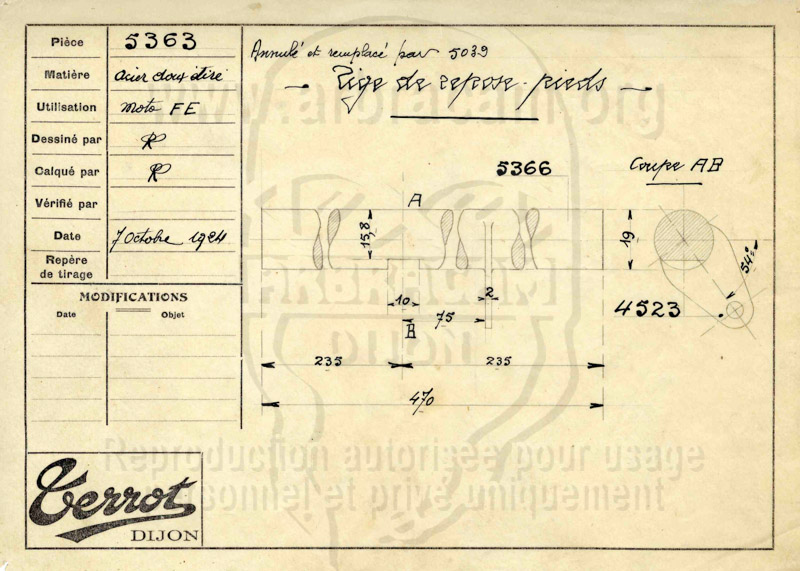 Pièce 5363
Matière acier doux étiré
Utilisation Moto FE
Dessiné par R
Calqué par R
Vérifié par
Date 7 Octobre 1924
Repère
de tirage
MODIFICATIONS
Date Objet
Terrot
DIJON
Annulé et remplacé par 5039
Tige de repose-pieds
5366
Coupe AB
A
15,8
19
54°
10
2
4523
75
B
235 235
470
www.arbracam.org
ARBRACAM
DIJON
Reproduction autorisée pour usage
personnel et privé uniquement